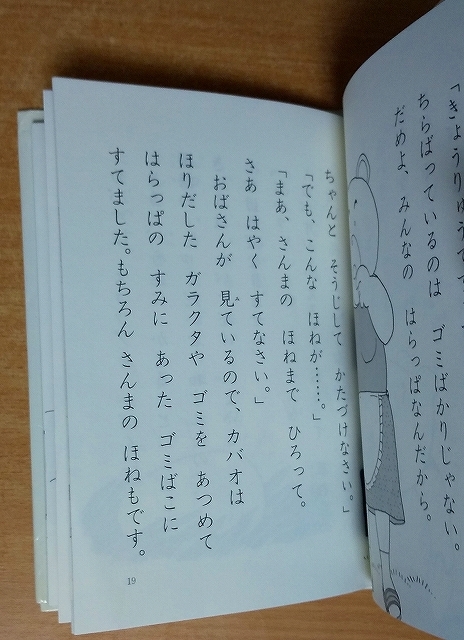 「きょうりゅう
ちらばっているのは ゴミばかりじゃない。
だめよ、みんなの はらっぱなんだから。
ちゃんと そうじして かたづけなさい。」
「でも、こんな ほねが……。」
「まあ、さんまの ほねまで ひろって。
さあ はやく すてなさい。」
おばさんが 見ているので、カバオは
ほりだした ガラクタや ゴミを あつめて
はらっぱの すみに あった ゴミばこに
すてました。もちろん さんまの ほねもです。
19